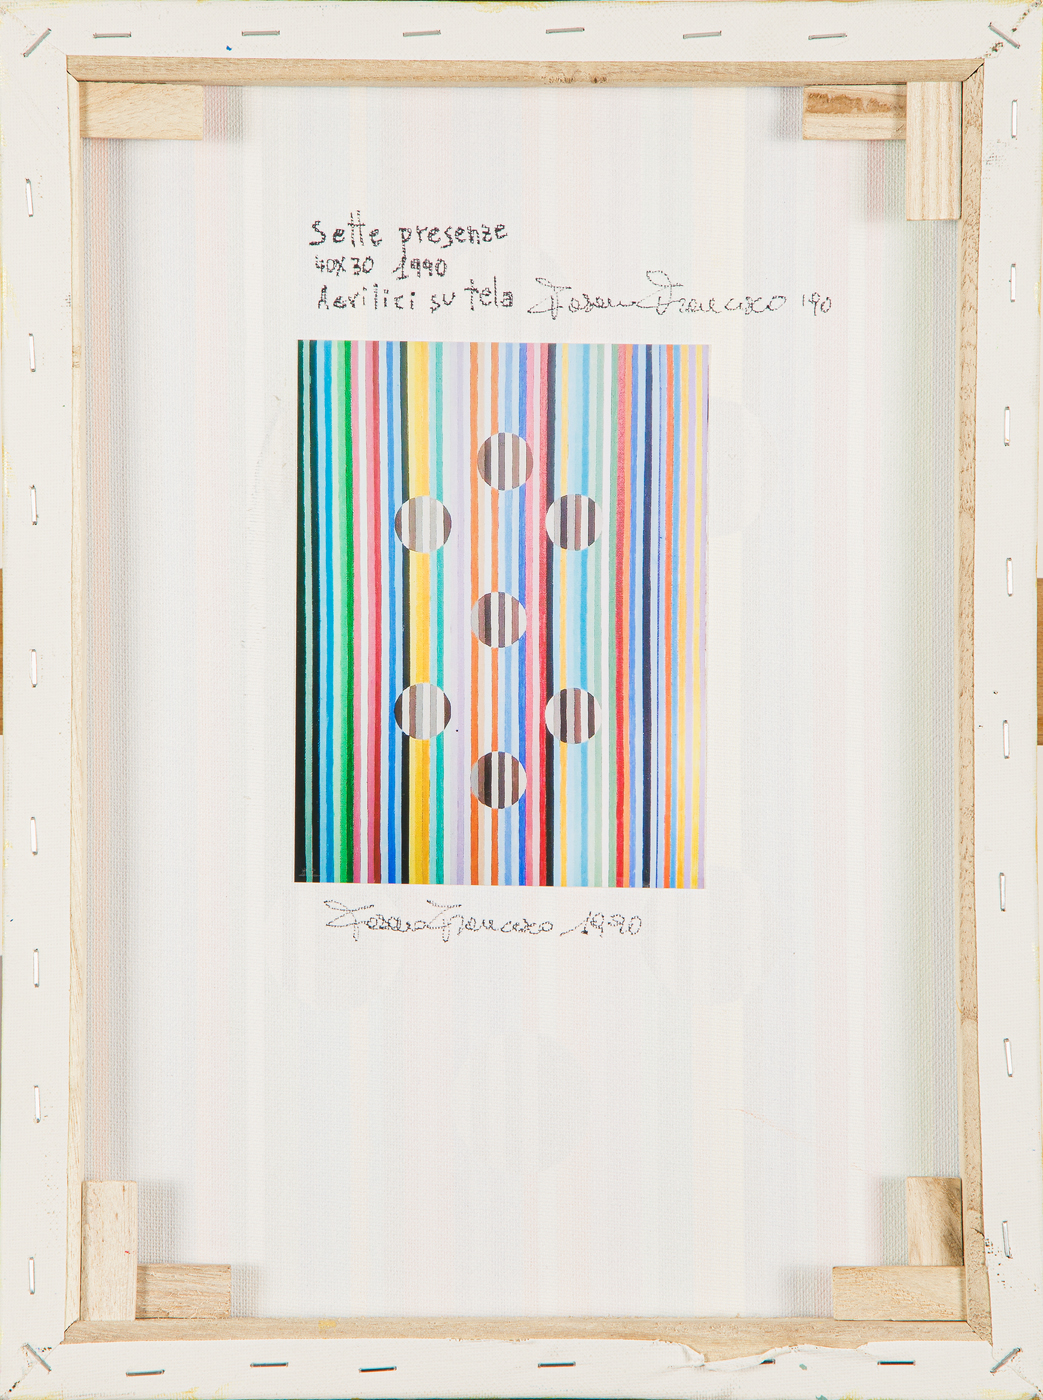 Sette presenze
40X30 1990
Acrilici su tela Francesco '90
Francesco 1990